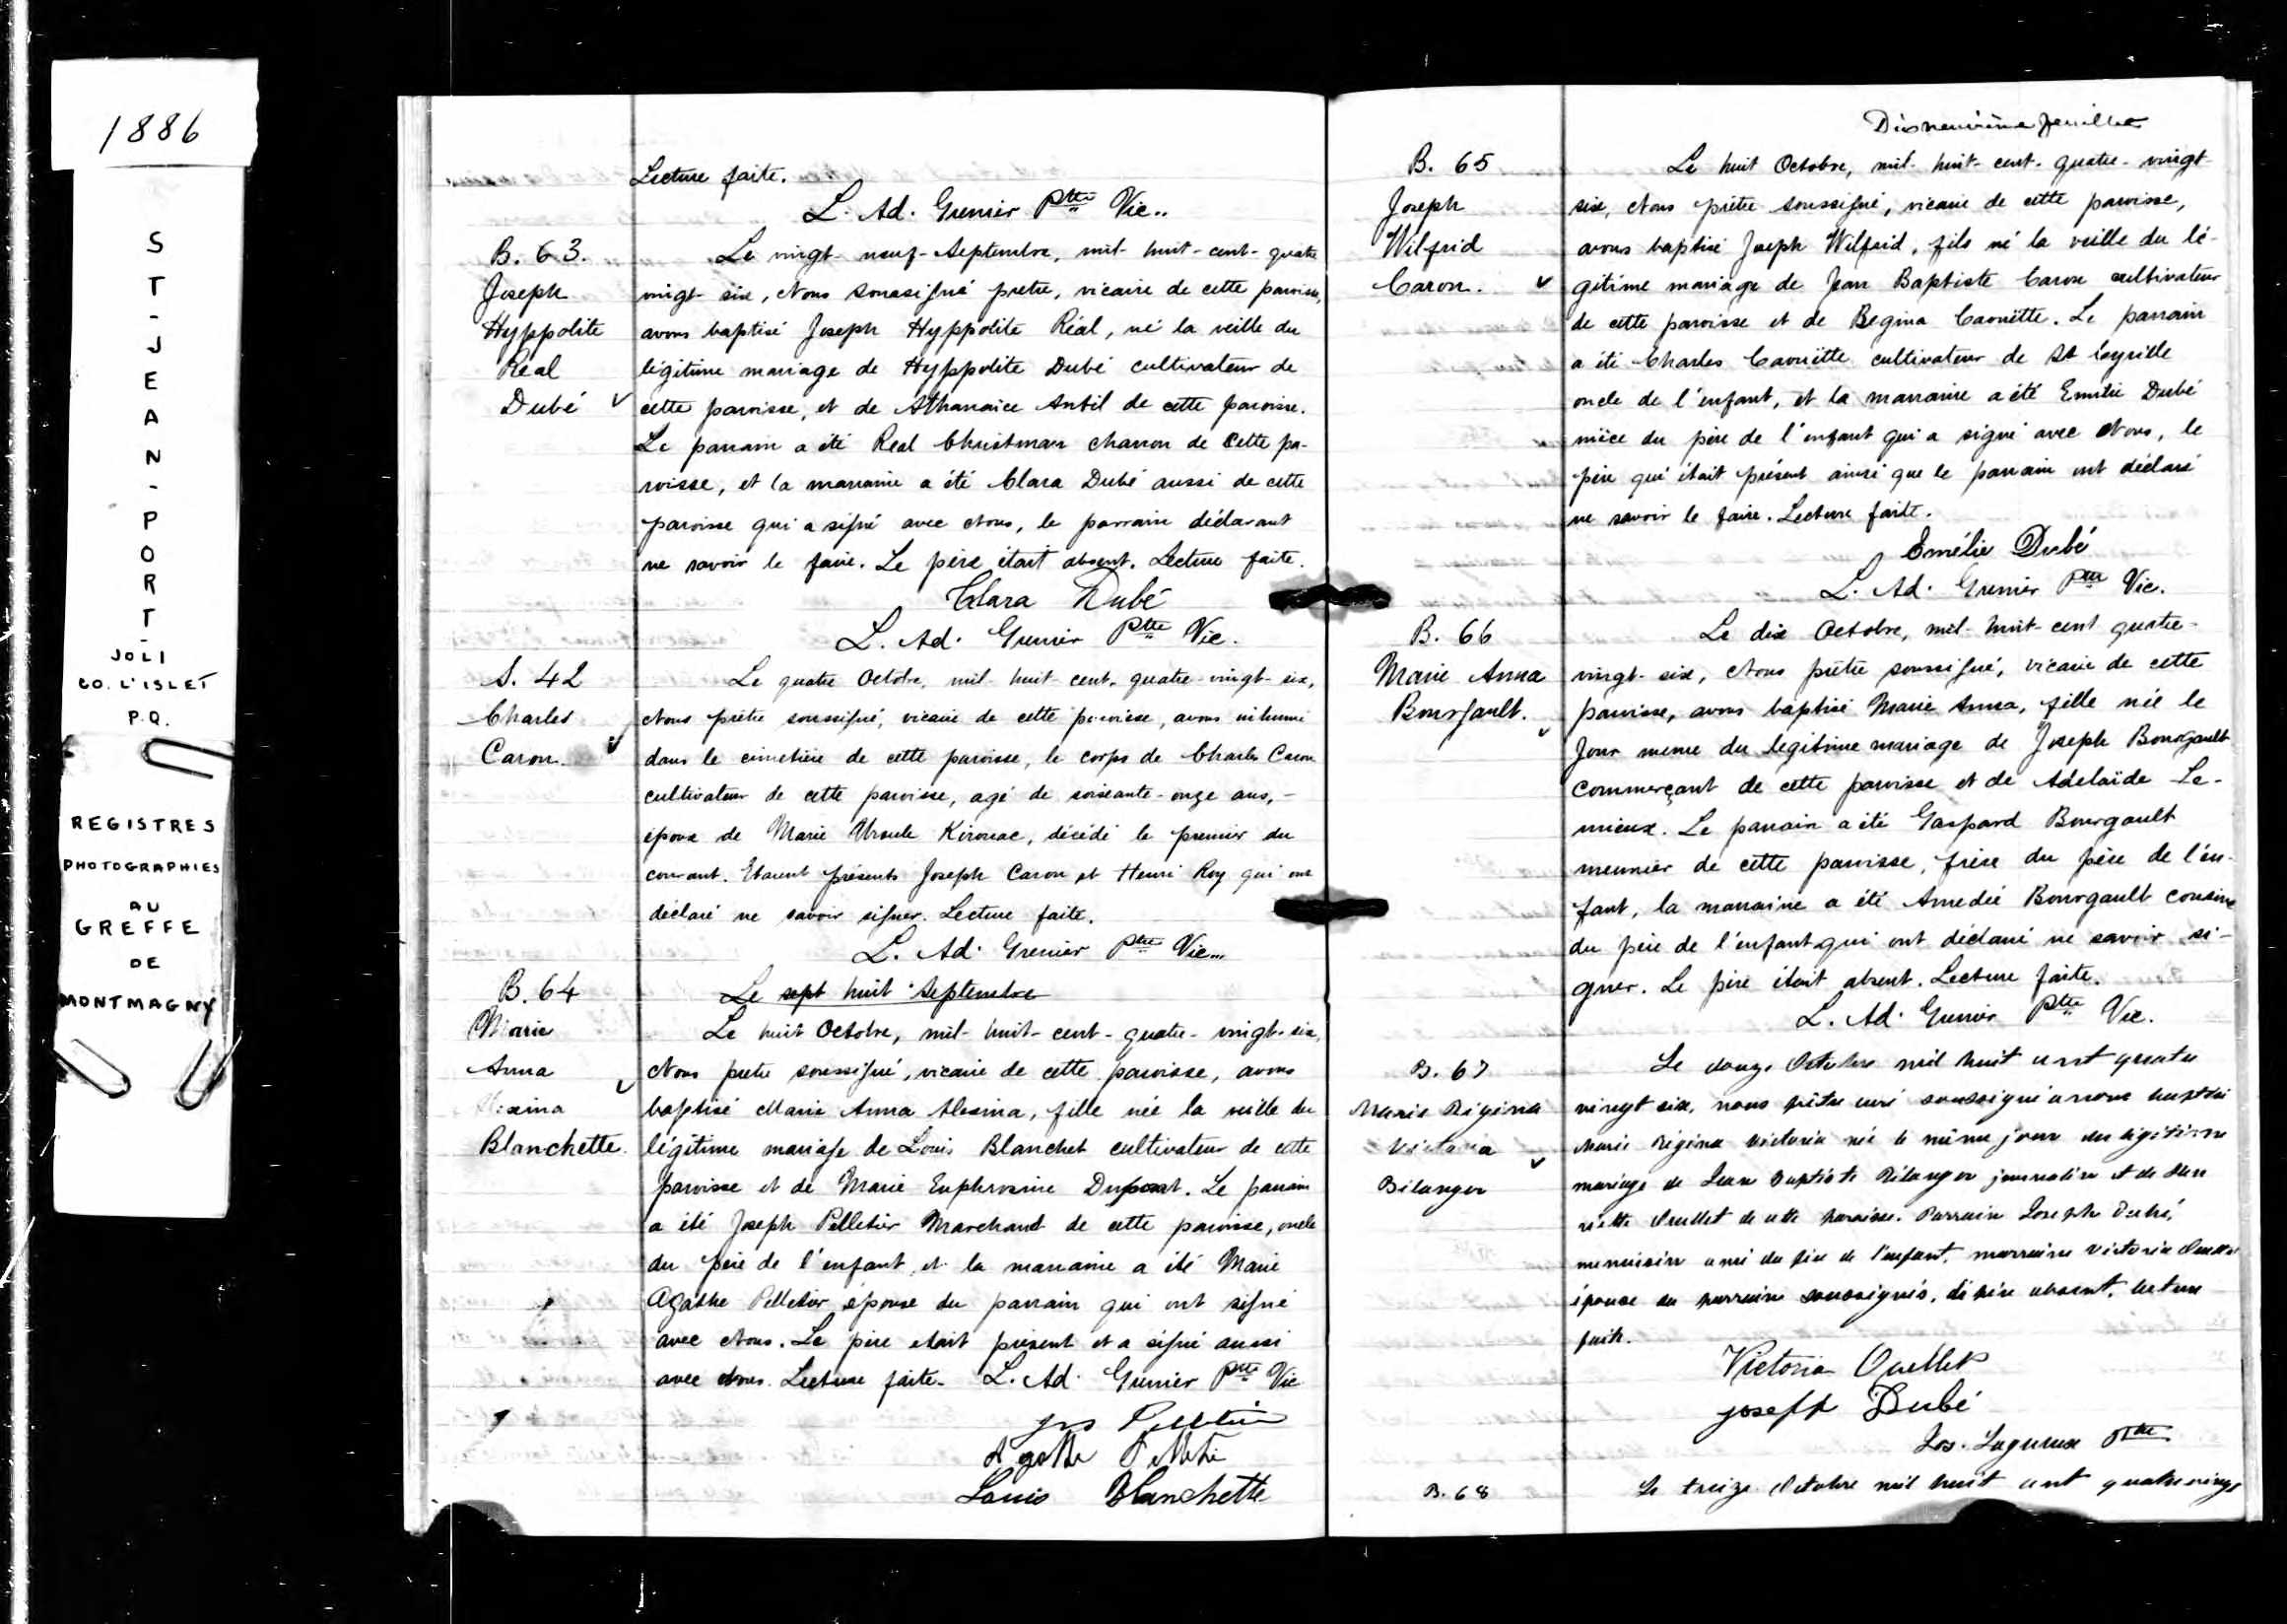 1886
ST-JEAN-PORT-
JOLI
CO. L'ISLET
P.Q.
REGISTRES
PHOTOGRAPHIES
AU
GREFFE
DE
MONTMAGNY
Lecture faite.
L. Ad. Grenier Ptre Vic..
B. 63.
Joseph
Hyppolite
Réal
Dubé
Le vingt-neuf-Septembre, mil-huit-cent-quatre
vingt-six, Nous soussigné prêtre, vicaire de cette paroisse,
avons baptisé Joseph Hyppolite Réal, né la veille du
légitime mariage de Hyppolite Dubé cultivateur de
cette paroisse, et de Athanaïce Anbil de cette paroisse.
Le parrain a été Real Christman charron de cette pa-
roisse, et la marraine a été Clara Dubé aussi de cette
paroisse qui a signé avec Nous, le parrain déclarant
ne savoir le faire. Le père était absent. Lecture faite.
Clara Dubé
L. Ad. Grenier Ptre Vic.
S. 42
Charles
Caron.
Le quatre Octobre, mil huit-cent-quatre-vingt-six,
Nous prêtre soussigné, vicaire de cette paroisse, avons inhumé
dans le cimetière de cette paroisse, le corps de Charles Caron
cultivateur de cette paroisse, agé de soixante-onze ans,-
époux de Marie Ursule Kirouac, décédé le premier du
courant. Etaient présents Joseph Caron et Henri Roy qui ont
déclaré ne savoir signer. Lecture faite.
L. Ad. Grenier Ptre Vic...
B. 64
Marie
Anna
Alexina
Blanchette.
Le sept huit Septembre
Le huit Octobre, mil-huit-cent-quatre-vingt-six,
Nous prêtre soussigné, vicaire de cette paroisse, avons
baptisé Marie Anna Alexina, fille née la veille du
légitime mariage de Louis Blanchet cultivateur de cette
paroisse et de Marie Euphrosine Dupont. Le parrain
a été Joseph Pelletier Marchand de cette paroisse, oncle
du père de l'enfant, et la marraine a été Marie
Agathe Pelletier épouse du parrain qui ont signé
avec Nous. Le père etait présent et a signé aussi
avec Nous. Lecture faite. L. Ad. Grenier Ptre Vic
Jos Pelletier
Agathe Pelletie
Louis Blanchette
Dixneuvième feuillet
B. 65
Joseph
Wilfrid
Caron.
Le huit Octobre, mil-huit-cent-quatre-vingt
six, Nous prêtre soussigné, vicaire de cette paroisse,
avons baptisé Joseph Wilfrid, fils né la veille du lé-
gitime mariage de Jean Baptiste Caron cultivateur
de cette paroisse et de Regina Caouëtte. Le parrain
a été Charles Caouëtte cultivateur de St Cyrille
oncle de l'enfant, et la marraine a été Emélie Dubé
nièce du père de l'enfant qui a signé avec Nous, le
père qui était présent ainsi que le parrain ont déclaré
ne savoir le faire. Lecture faite.
Emélie Dubé
L. Ad. Grenier Ptre Vic.
B. 66
Marie Anna
Bourgault.
Le dix Octobre, mil-huit-cent quatre-
vingt-six, Nous prêtre soussigné, vicaire de cette
paroisse, avons baptisé Marie Anna, fille née le
jour meme du légitime mariage de Joseph Bourgault
commerçant de cette paroisse et de Adelaïde Le-
mieux. Le parrain a été Gaspard Bourgault
meunier de cette paroisse, frère du père de l'en-
fant, la marraine a été Amedée Bourgault cousine
du père de l'enfant qui ont déclaré ne savoir si-
gner. Le père était absent. Lecture faite.
L. Ad. Grenier Ptre Vic.
B. 67
Marie Régina
Victoria
Bélanger
Le douze Octobre mil huit cent quatre
vingt six, nous prêtre curé soussigné avons baptisé
Marie Régina Victoria née le même jour du légitime
mariage de Jean Baptiste Bélanger journalier et de Hen
riette Ouellet de cette paroisse. Parrain Joseph Dubé,
menuisier ami du père de l'enfant, marraine Victoria Ouellet
épouse du parrain soussignés, le père absent. Lecture
faite.
Victoria Ouellet
joseph Dubé
Jos. Lagueux Ptre
B. 68
Le treize Octobre mil huit cent quatre vingt